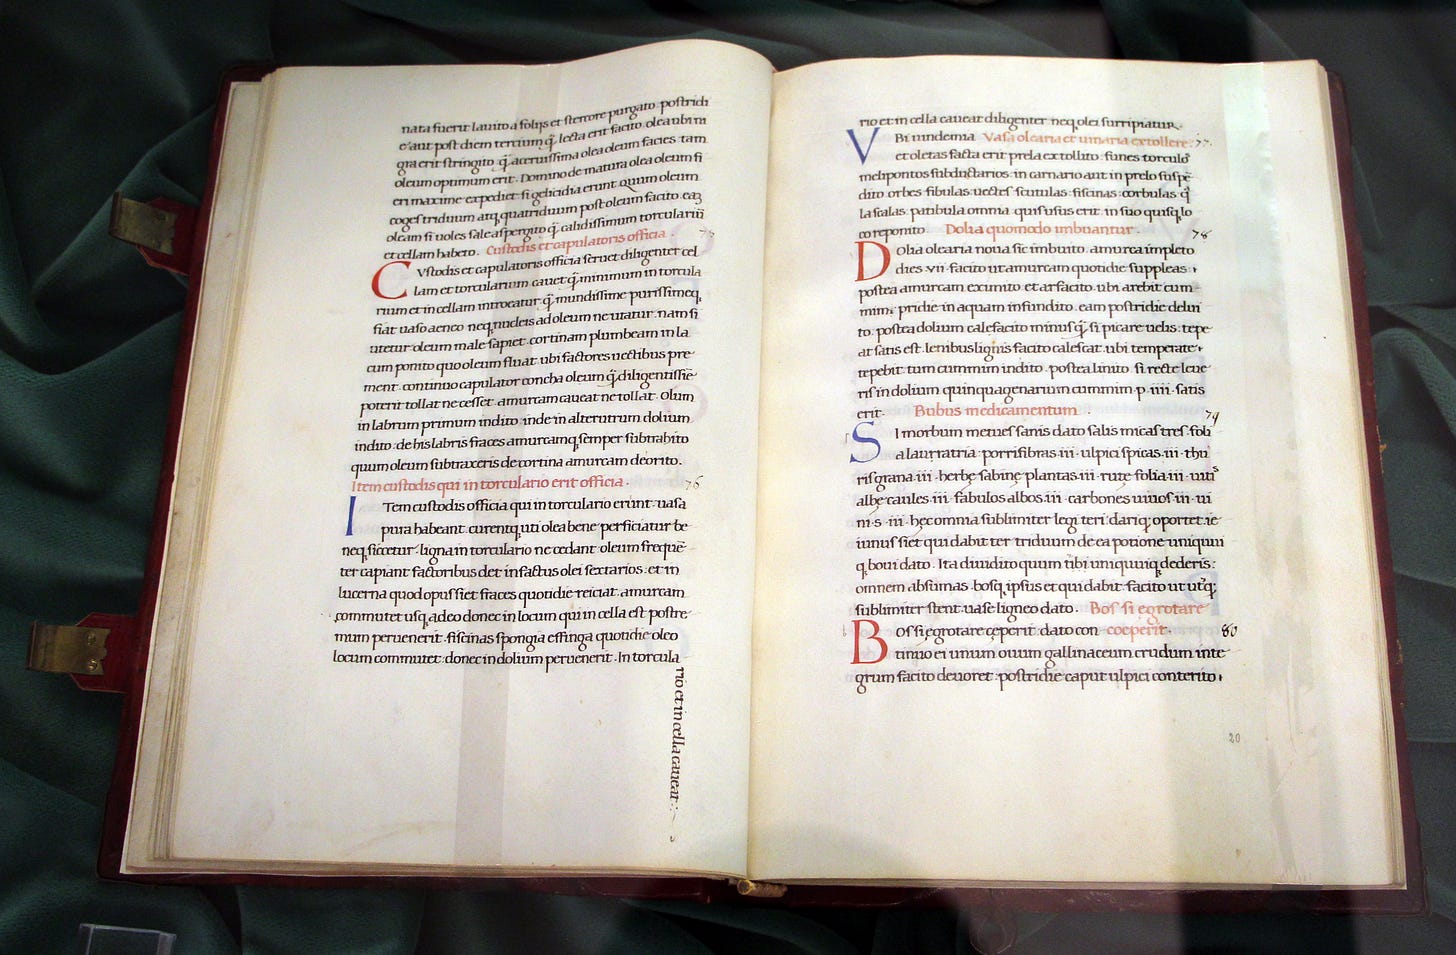 nata fuerit lauito a folijs et sterrore purgato postridi
e aut post diem tertium q̃ lecta erit facito olea ubi ni
gra erit stringito q̃ aceruissima olea oleum facies tam
oleum optimum erit. Domino de matura olea oleum fi
eri maxime expediet si gelicidia erunt quum oleum
coges triduum atq; quatriduum post oleum facito. eaȝ
oleam si uoles sale aspergito q̃ calidissimum torculariũ
et cellam habeto. Custodis et capulatoris officia.
CVstodis et capulatoris officia seruet diligenter cel
lam et torcularium cauet q̃ minimum in torcula
rium et in cellam introeatur q̃ mundissime purissimeq;
fiat uaso aeneo neq; nucleis ad oleum ne utatur. nam si
utetur oleum male sapiet. cortinam plumbeam in la
cum ponito quo oleum fluat. ubi factores uectibus pre
ment. continuo capulator concha oleum q̃ diligentissie
poterit tollat ne cesset. amurcam caueat ne tollat. Olum
in labrum primum indito. inde in alterutrum dolium
indito. de his labris fraces amurcamq; semper subtrahito
quum oleum subtraxeris de cortina amurcam deorito.
Item custodis qui in torculario erit officia. 76
ITem custodis officia qui in torculario erunt. uasa
pura habeant. curentq; uti olea bene perficiatur be
neq; siccetur. ligna in torculario ne cedant. oleum frequẽ
ter capiant factoribus det in factus olei sextarios. et in
lucerna quod opus siet fraces quotidie reiciat. amurcam
commutet usq; adeo donec in locum qui in cella est postre
mum peruenerit. fiscinas spongia effinga quotidie oleo
locum commutet. donec in dolium peruenerit. In torcula
rio et in cella caueat
rio et in cella caueat diligenter neq; olei surripiatur.
VBi uindemia Vasa olearia et uinaria extollere. 77.
et oletas facta erit prela extollito. funes torculo
melipontos subductarios. in carnario aut in prelo suspẽ
dito orbes fibulas uectes scutulas fiscinas. corbulas q̃
la scalas. patibula omnia quis usus erit. in suo quisq; lo
co reponito Dolia quomodo imbuantur. 78
DOlia olearia noua sic imbuito. amurca impleto
dies .vii. facito ut amurcam quotidie suppleas.
postea amurcam exumito et arfacito. ubi arebit cum
mim. pridie in aquam infundito. eam postridie delui
to. postea dolium calefacito minus q̃ si picare uelis. tepe
at satis est. lenibus lignis facito calescat. ubi temperate
tepebit tum cummim indito. postea linito si recte leue
ris in dolium quinquagenarium cummim p. iiii. satis
erit. Bubus medicamentum. 79
SI morbum metues sanis dato salis micas tres. foli
a laurea tria. porri fibras .iii. ulpici spicas .iii. thu
ris grana .iii. herbe sabine plantas .iii. rute folia .iii. uitis
albe caules .iii. fabulos albos .iii. carbones uiuos .iii. ui
ni .s. iii. hec omnia sublimiter legi teri dariq; oportet ie
iunus siet qui dabit ter triduum de ea potione unicuui
q; boui dato. Ita diuidito quum tibi unicuiq; dederis:
omnem absumas. bosq; ipsus et qui dabit. facito ut utq;
sublimiter stent. uase ligneo dato. Bos si egrotare
BOs si egrotare ceperit dato con coeperit. 80
tinuo ei unum ouum gallinaceum crudum inte
grum facito deuoret. postridie caput ulpici conterito.
20